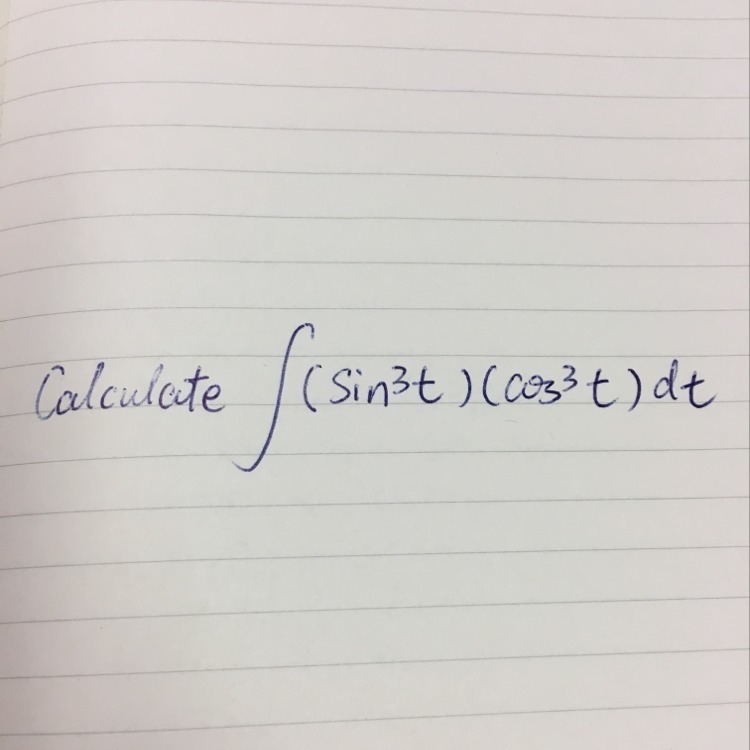 Calculate ∫(sin³t)(cos³t)dt